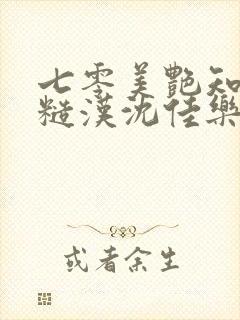 七零美艳知
糙漢沈佳樂
或者余生